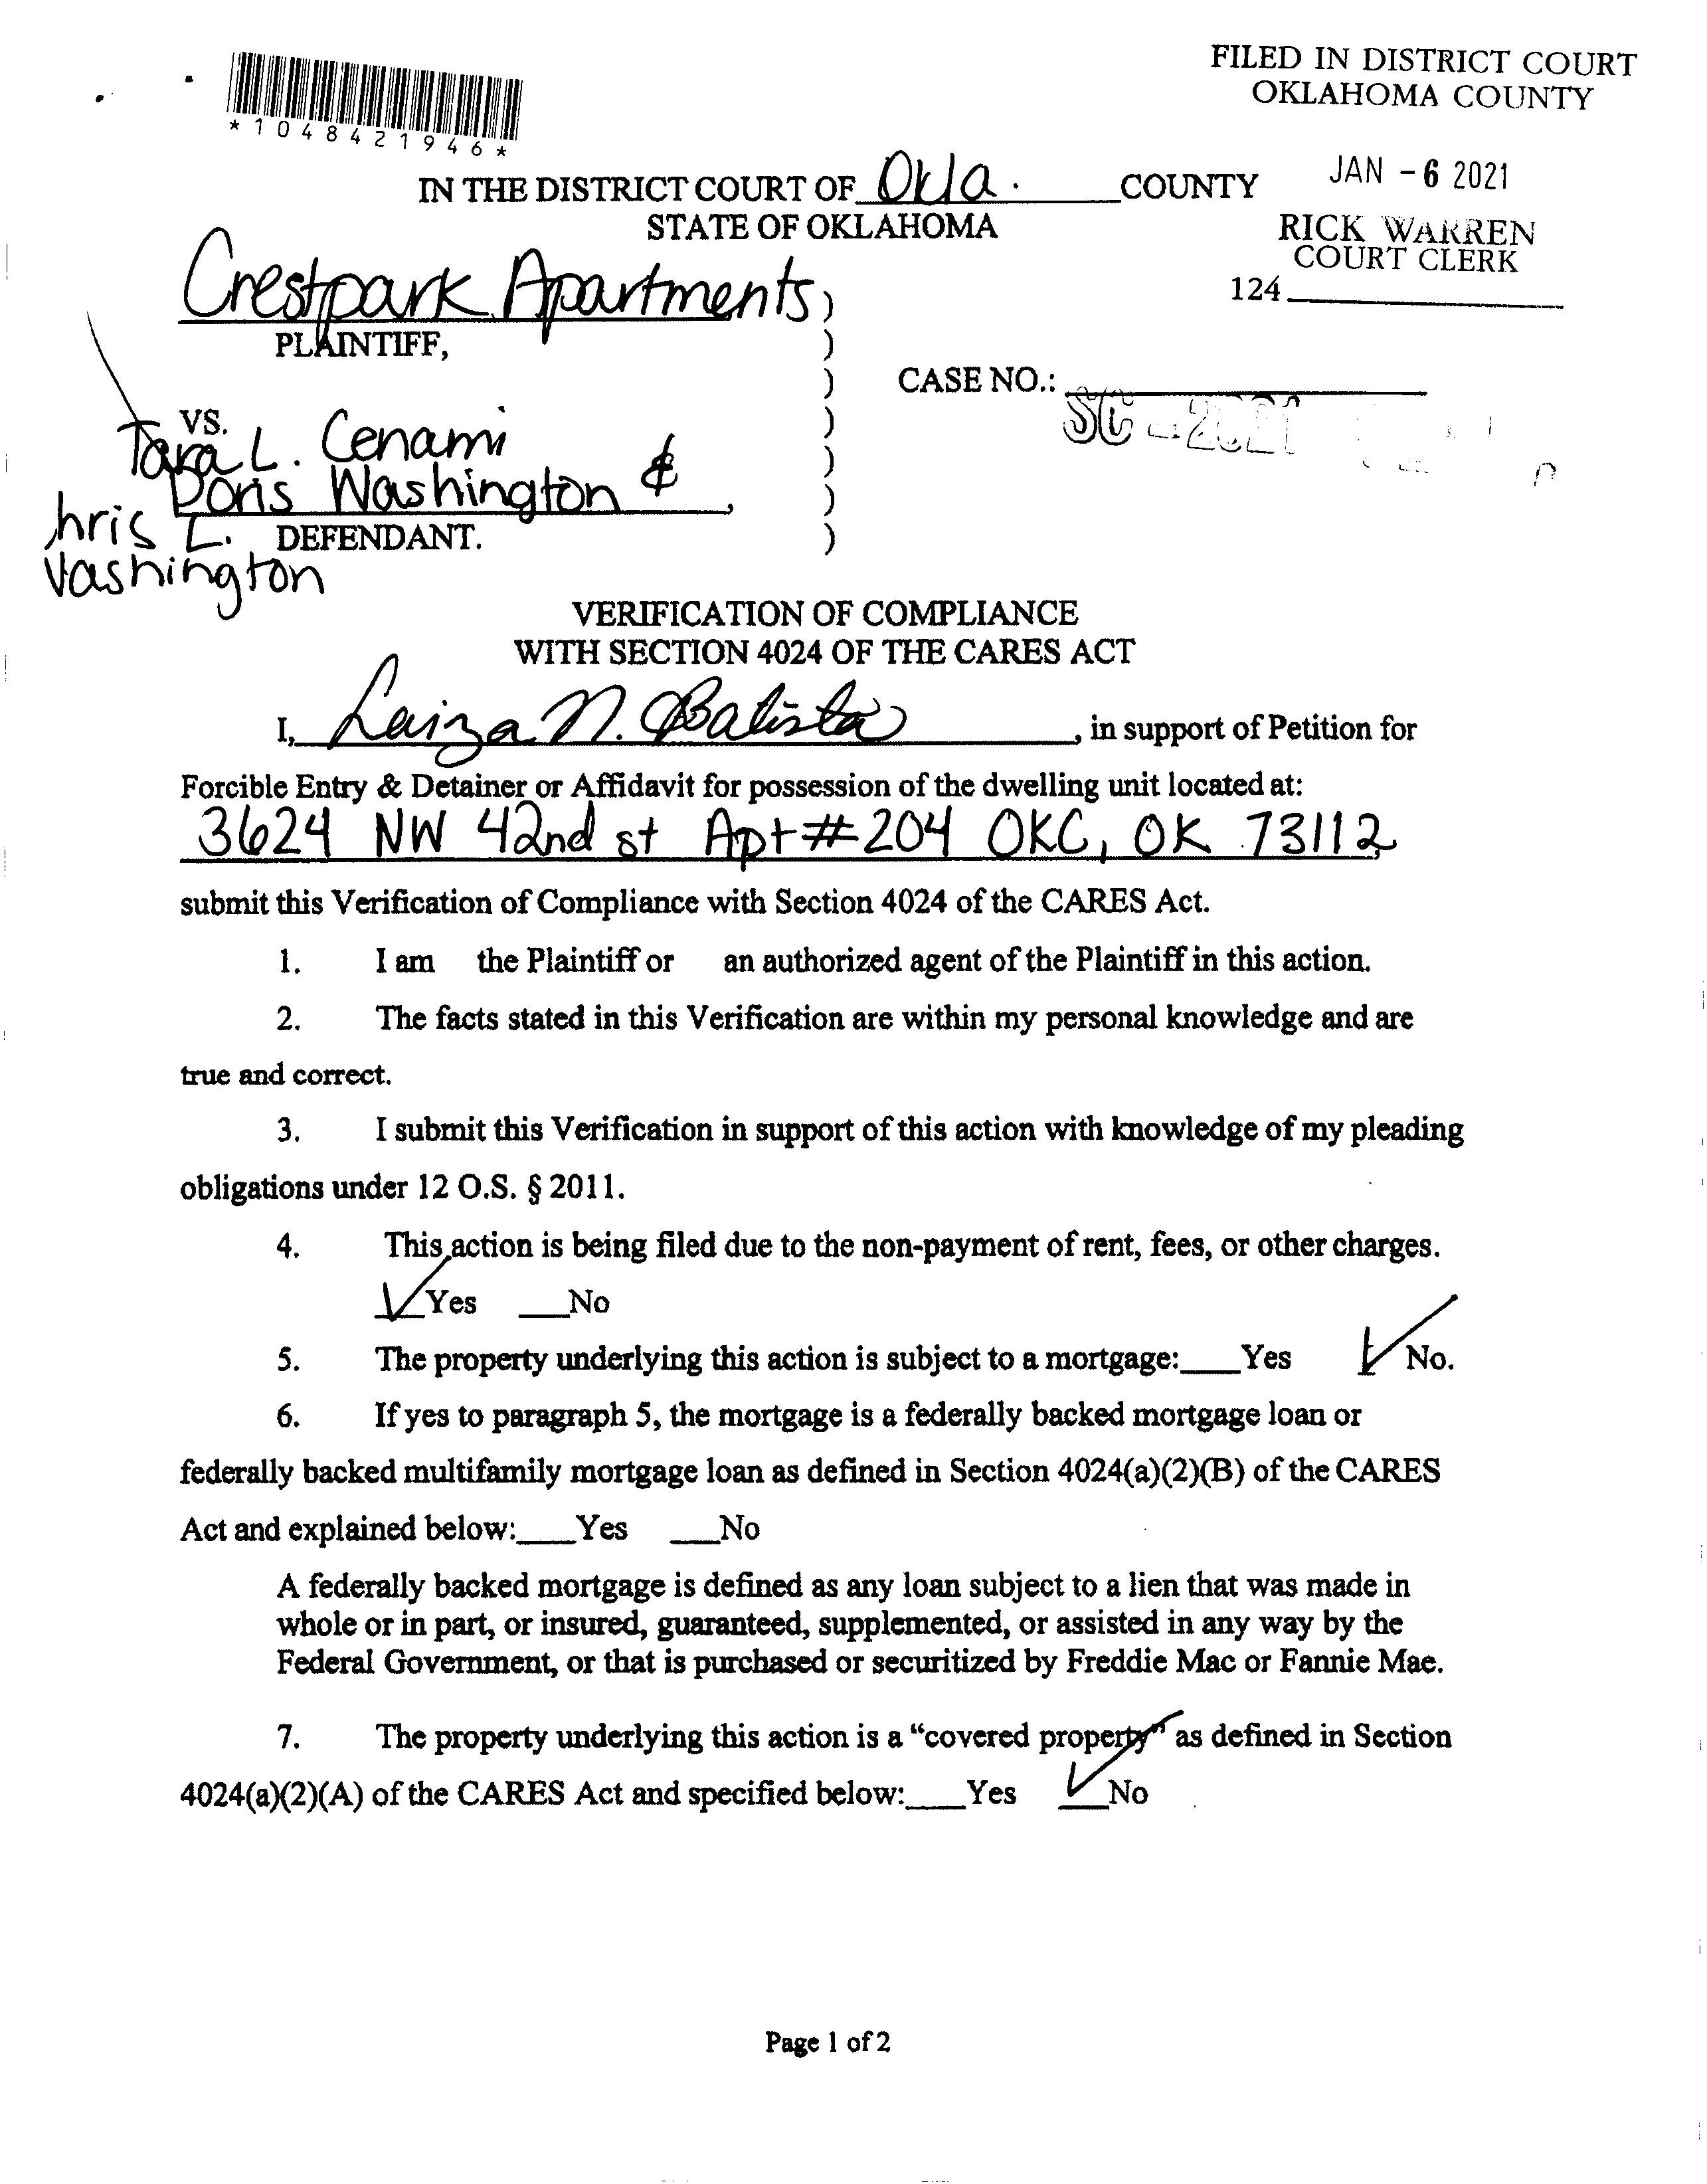 FILED IN DISTRICT COURT
OKLAHOMA COUNTY
*1048421946*
JAN -6 2021
IN THE DISTRICT COURT OF Okla. COUNTY
STATE OF OKLAHOMA
RICK WARREN
COURT CLERK
124
Crestpark Apartments )
PLAINTIFF, )
) CASE NO.:
SC-2021
VS. )
Tara L. Cenami )
Doris Washington & , )
hris L. DEFENDANT. )
Washington
VERIFICATION OF COMPLIANCE
WITH SECTION 4024 OF THE CARES ACT
I, Laiza N. Batista, in support of Petition for
Forcible Entry & Detainer or Affidavit for possession of the dwelling unit located at:
3624 NW 42nd st Apt#204 OKC, OK 73112
submit this Verification of Compliance with Section 4024 of the CARES Act.
1. I am the Plaintiff or an authorized agent of the Plaintiff in this action.
2. The facts stated in this Verification are within my personal knowledge and are
true and correct.
3. I submit this Verification in support of this action with knowledge of my pleading
obligations under 12 O.S. § 2011.
4. This action is being filed due to the non-payment of rent, fees, or other charges.
✓Yes ___No
5. The property underlying this action is subject to a mortgage:___Yes ✓No.
6. If yes to paragraph 5, the mortgage is a federally backed mortgage loan or
federally backed multifamily mortgage loan as defined in Section 4024(a)(2)(B) of the CARES
Act and explained below:___Yes ___No
A federally backed mortgage is defined as any loan subject to a lien that was made in
whole or in part, or insured, guaranteed, supplemented, or assisted in any way by the
Federal Government, or that is purchased or securitized by Freddie Mac or Fannie Mae.
7. The property underlying this action is a “covered property” as defined in Section
4024(a)(2)(A) of the CARES Act and specified below:___Yes ✓No
Page 1 of 2